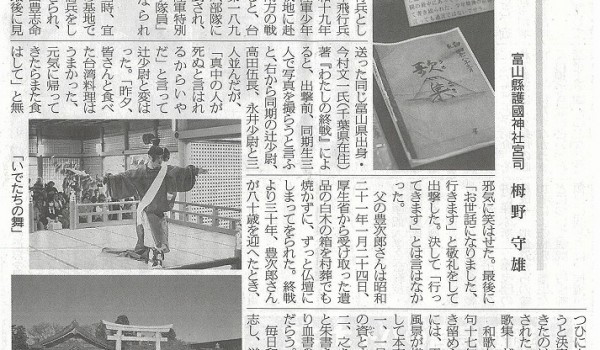 富山縣護國神社宮司　栂野　守雄
歌集
兵とし
飛行兵
軍少年
十九年
地に赴
方の戦
と、台
部隊に
軍特別
隊員」
され、
なられ
時、宜
基地で
豊志命
後に見
送った同じ富山県出身・
今村文一氏（千葉県在住）
著『わたしの終戦』によ
ると、出撃前、同期生三
人で写真を撮らうと言ふ
と、右から同期の辻少尉、
高田伍長、永井少尉と三
人並んだが、
「真中の人が
死ぬと言はれ
るからいや
だ」と言って
辻少尉と変は
った。「昨夕、
皆さんと食べ
た台湾料理は
うまかった、
元気に帰って
きたらまた食
はして」と無
「いでたちの舞」
邪気に笑はせた。最後に
「お世話になりました、
行きます」と敬礼をして
出撃した。決して「行っ
てきます」とは言はなか
った。
父の豊次郎さんは昭和
二十一年一月二十四日、
厚生省から受け取った遺
品の白木の箱を村葬でも
焼かずに、ずっと仏壇に
しまってをられた。終戦
より三十年、豊次郎さん
が八十歳を迎へたとき、
つひに
うと決
きたの
された
歌集
和歌
句十七
き留め
には、
風景が
して本
の資と
二、之
と朱書
り血書
だらう
毎日
志し、